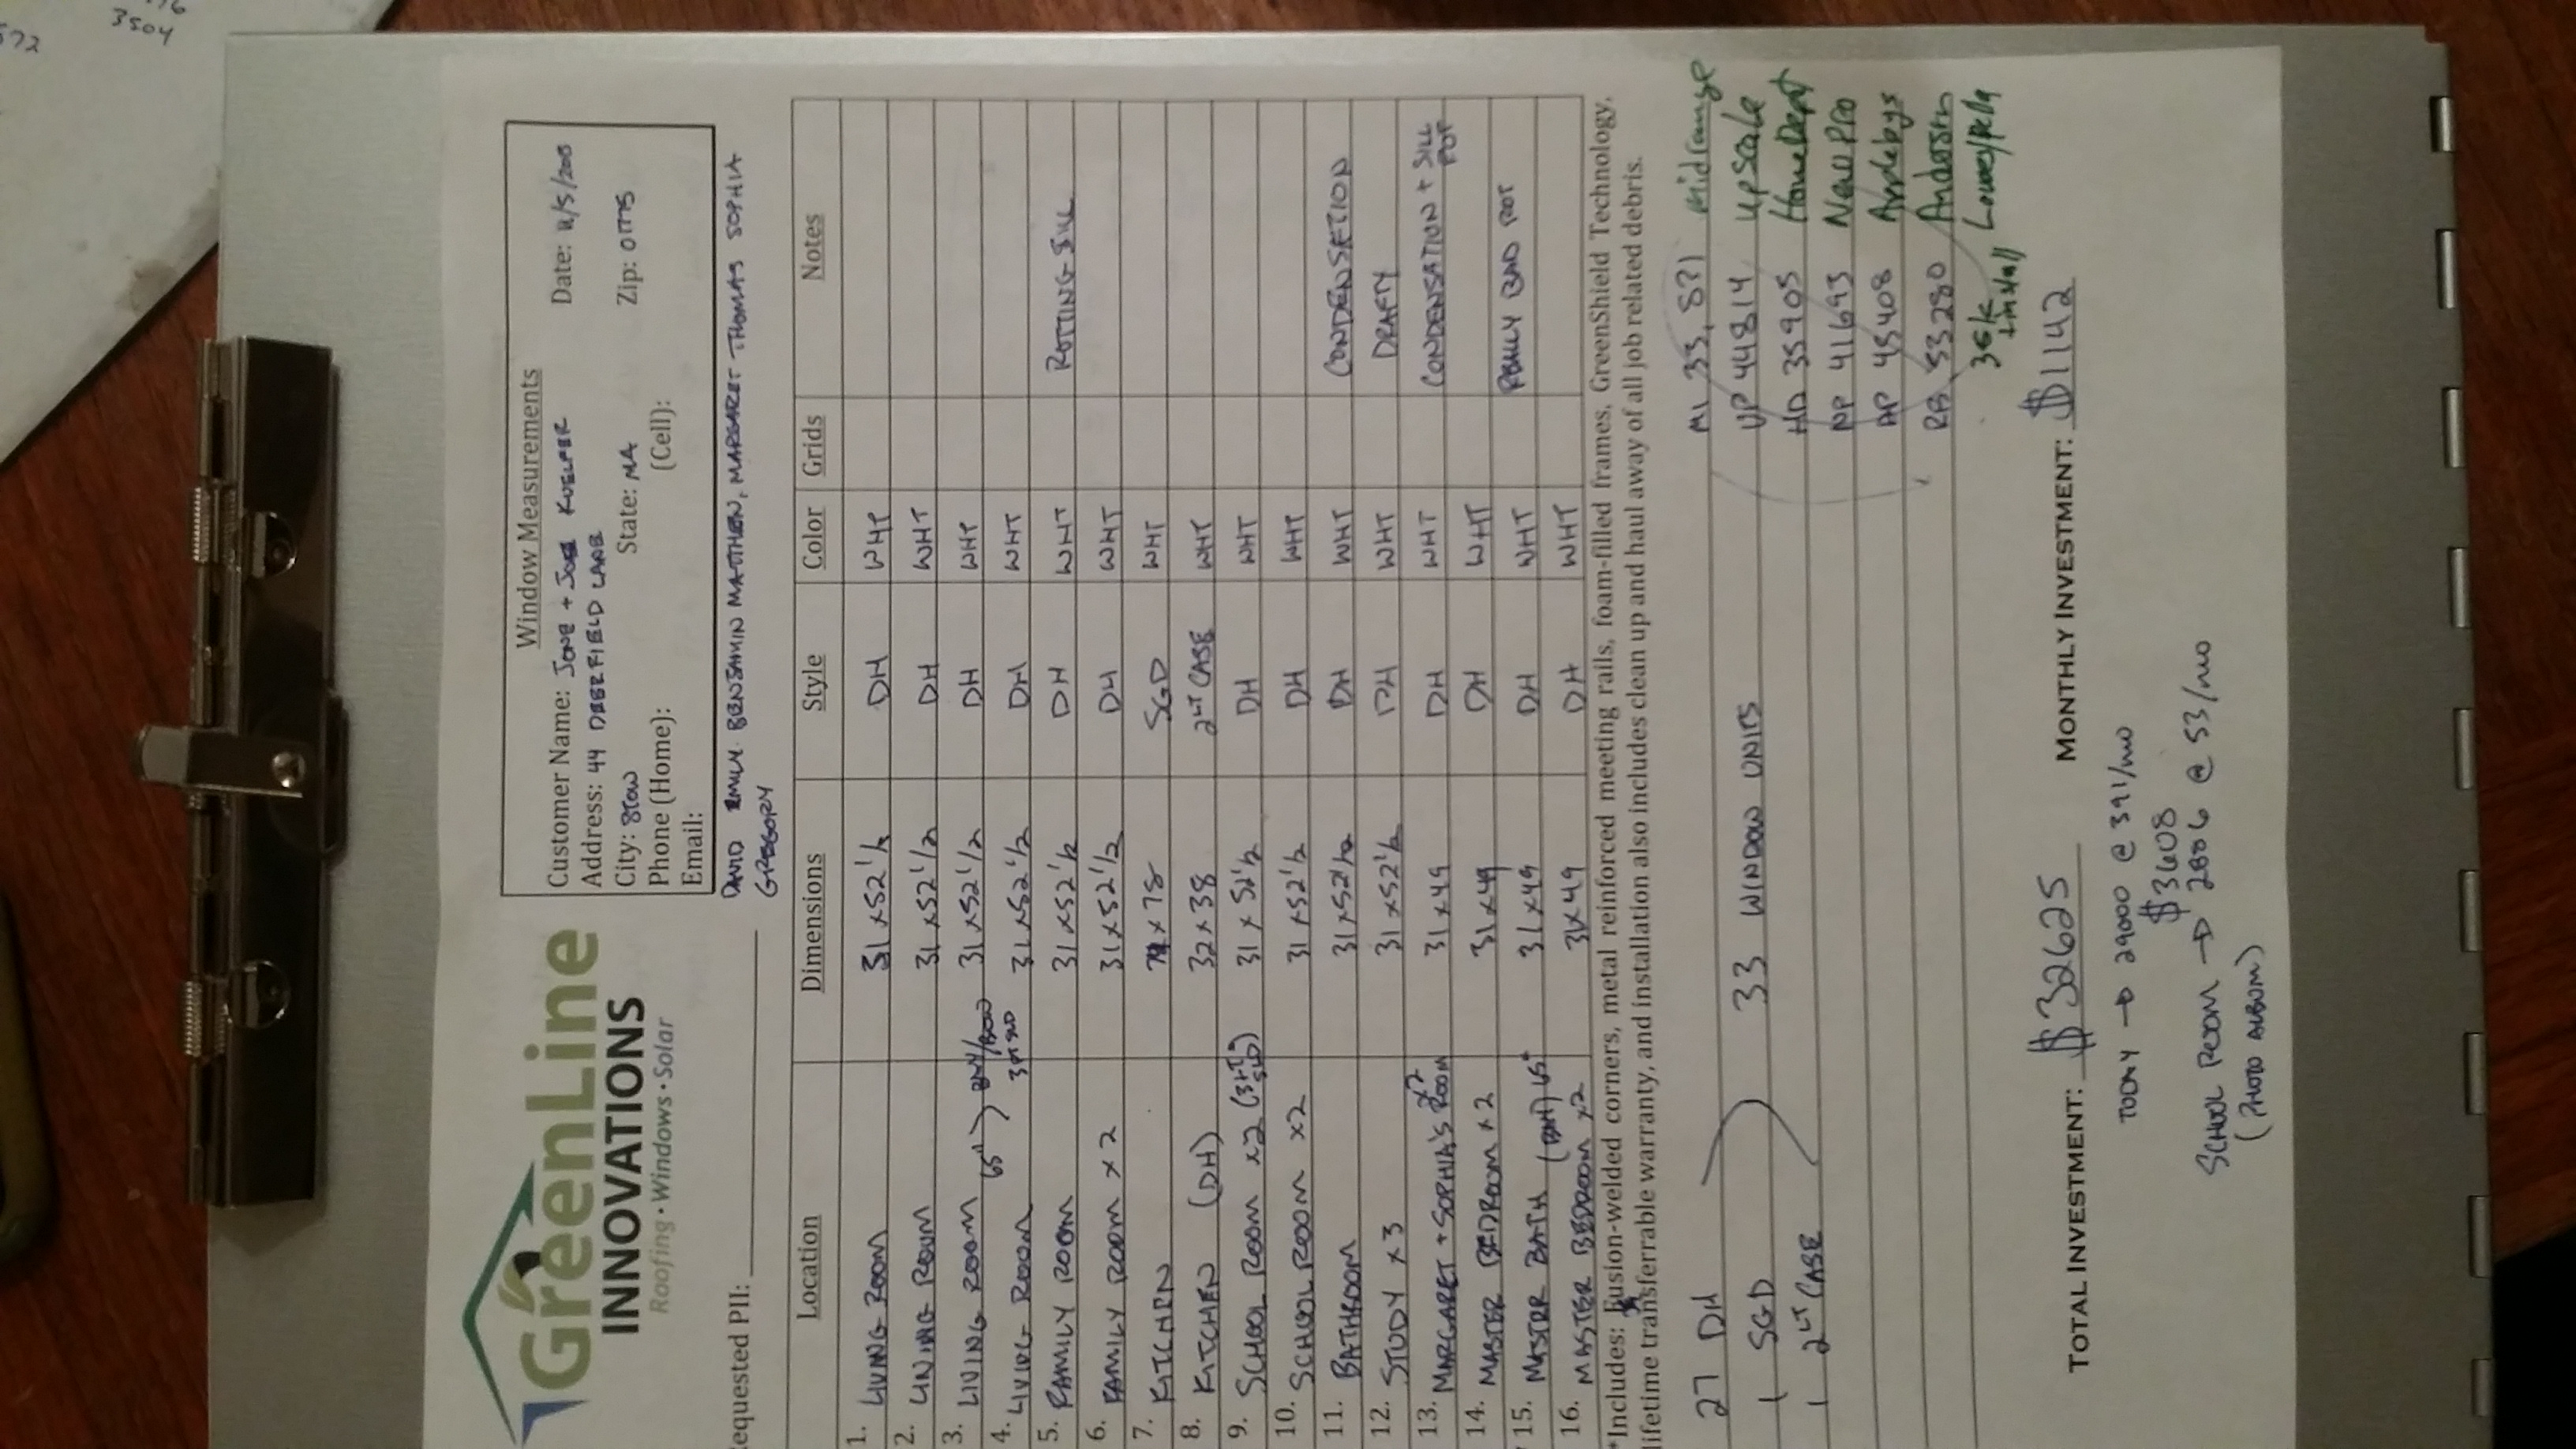 3504
572
GreenLine
INNOVATIONS
Roofing • Windows • Solar
Window Measurements
Customer Name: JANE + JOE KOELPER Date: 11/5/2015
Address: 44 DEERFIELD LANE
City: STOW State: MA Zip: 01775
Phone (Home): (Cell):
Email:
equested PII:
DAVID EMILY BENJAMIN MATTHEW, MARGARET THOMAS SOPHIA
GREGORY
Location Dimensions Style Color Grids Notes
1. LIVING ROOM 31 x 52 1/2 DH WHT
2. LIVING ROOM 31 x 52 1/2 DH WHT
3. LIVING ROOM 65" BAY/BOW 31 x 52 1/2 DH WHT
4. LIVING ROOM 31 x 52 1/2 DH WHT
5. FAMILY ROOM 31 x 52 1/2 DH WHT ROTTING SILL
6. FAMILY ROOM x 2 31 x 52 1/2 DH WHT
7. KITCHEN x 78 SGD WHT
8. KITCHEN (DH) 32 x 38 2 LT CASE WHT
9. SCHOOL ROOM x2 31 x 52 1/2 DH WHT
10. SCHOOL ROOM x2 31 x 52 1/2 DH WHT
11. BATHROOM 31 x 52 1/2 DH WHT CONDENSATION
12. STUDY x 3 31 x 52 1/2 DH WHT DRAFTY
13. MARGARET + SOPHIA'S ROOM x2 31 x 49 DH WHT CONDENSATION + SILL ROT
14. MASTER BEDROOM x 2 31 x 49 DH WHT
15. MASTER BATH 31 x 49 DH WHT REALLY BAD ROT
16. MASTER BEDROOM x2 31 x 49 DH WHT
*Includes: Fusion-welded corners, metal reinforced meeting rails, foam-filled frames, GreenShield Technology,
lifetime transferrable warranty, and installation also includes clean up and haul away of all job related debris.
27 DH
1 SGD
1 2 LT CASE
33 WINDOW UNITS
MI 33,831 Midrange
UP 44814 Upscale
HD 35905 Home Depot
NP 41693 New Pro
AP 45408 Applebys
RA 53280 Andersen
35k + install Lowes/Pella
TOTAL INVESTMENT: $32625 MONTHLY INVESTMENT: $1142
TODAY → 29000 @ 391/mo
$3608
SCHOOL ROOM → 2806 @ 53/mo
(PHOTO ALBUM)